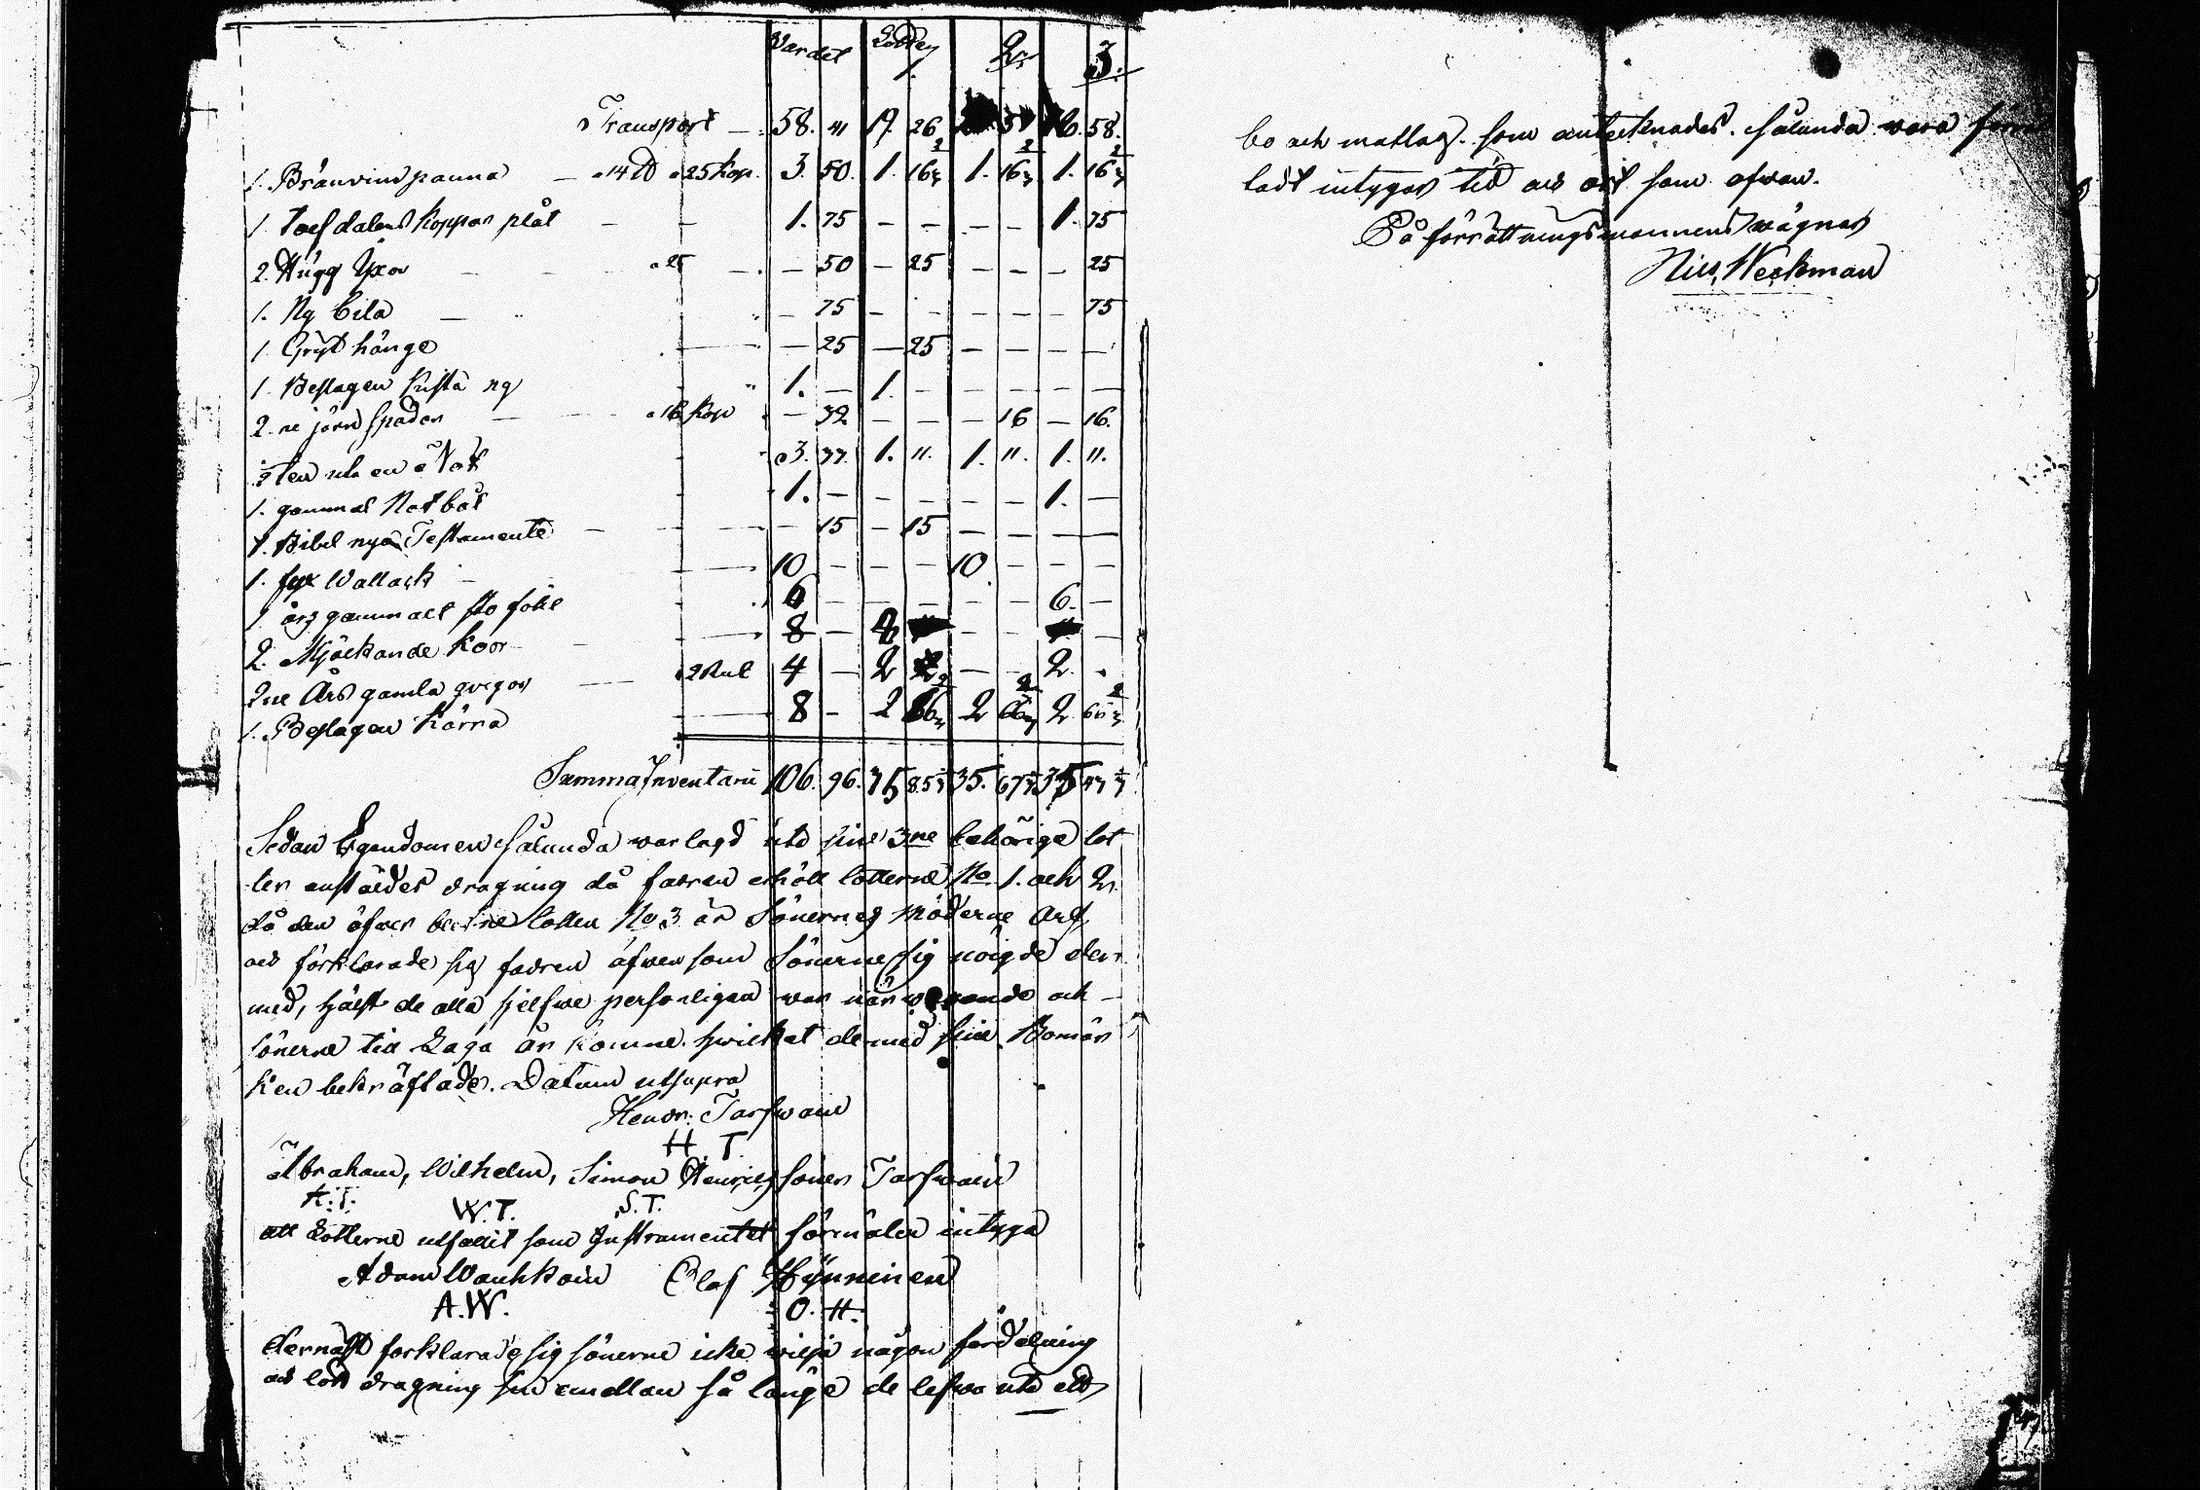 Värdet Lotten 1. 2. 3.
Transport — 58. 41 17. 26 58.
1. Bränvins panna — a 14 ℔ a 25 kop. 3. 50. 1. 16 2/3 1. 16 2/3 1. 16 2/3
1. koppar plåt — — 1. 75 — — — — 1. 75
2. Hugg Yxor — — a 25 — — 50 — 25 — — — 25
1. Ny bila — — 75 — — — — — 75
1 Gryt hänge — 25 — 25 — — — —
1. Beslagen kista ny 1. — 1. — — — — —
2. ne järn spader — a 16 kop — 32 — — — 16 — 16.
en Not 3. 33. 1. 11. 1. 11. 1. 11.
1. gammal Not båt 1. — — — — — 1. —
1. Bibel nya Testamente — — 15 — 15 — — — —
1. fux Wallack — 10 — — — 10 — — —
1 års gammalt sto fohl 6 — — — — — 6. —
2. Mjölkande Koor 8 — — — —
2ne Års gamla qvigor — a 2 Rub 4 — 2 — — 2.
1. Beslagen Kärra 8 — 2 66 2/3 2 66 2/3 2 66 2/3
Summa Inventarii 106. 96. 35 35. 35
Sedan Egendomen sålunda war lagd uti sine 3ne behörige lot
ter anstäldes dragning då fadren erhöll lotterne No. 1. och 2.
då den öfver blefne lotten No 3 är Sönernes Möderne Arf,
och förklarade sig fadren äfwen som Sönerne sig nöigde der
med, hälst de alla sjelfwe personligen war närwarande och
sönerne till Laga år komne. hwilket de med sine Bomär
ken bekräftade. Datum utsupra
Hendr. Tarfwain
H T
Abraham, Wilhelm, Simon Henrics söner Tarfwain
A. T. W. T. S. T.
att Lotterne utfallit som Instrumentet förmäler intyga
Adam Wauhkoin Olof Hynninen
A. W. O. H.
dernäst förklarade sig sönerne icke wilja någon fördelning
och lott dragning sin emellan så länge de lefwa uti ett
bo och matlag. som antecknades. sålunda wara
ladt intygas tid och ort som ofwan.
På förrättningsmannens wägnar
Nils Weckman